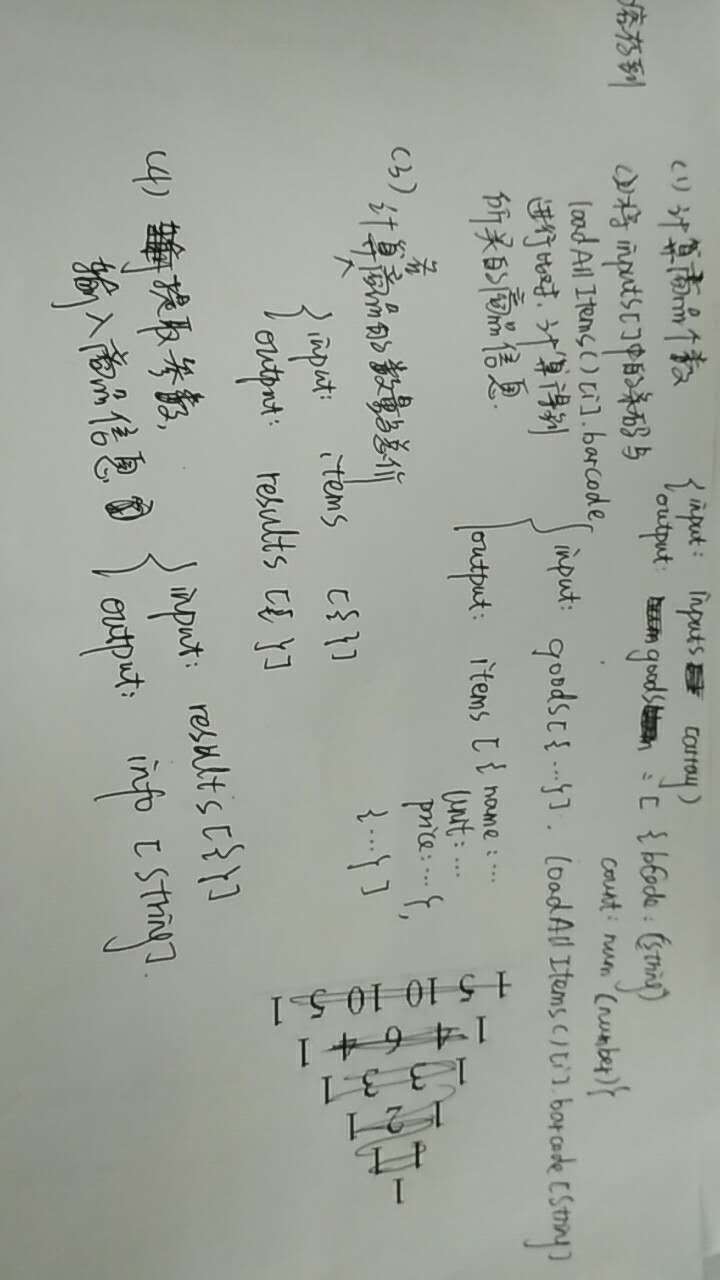 (1) 计算商品个数
{ input: inputs (array)
output: goods = [ { bCode: (string)
count: num (number) {
(2) 将 inputs[] 中的条码与
loadAllItems()[i].barcode
进行比对，计算得到
所买的商品信息.
{ input: goods [{...}]. loadAllItems()[i].barcode [string]
output: items [ { name: ...
unit: ...
price: ... },
{...} ]
(3) 计算商品的数量与总价
{ input: items [{ }]
output: results [{ }]
(4) 提取参数,
输入商品信息
{ input: results [{ }]
output: info [string].
1
1 1
1 2 1
1 3 3 1
1 4 6 4 1
1 5 10 10 5 1